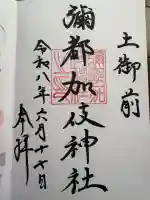 土御前
彌都加伎神社
令和八年六月十七日
奉拝